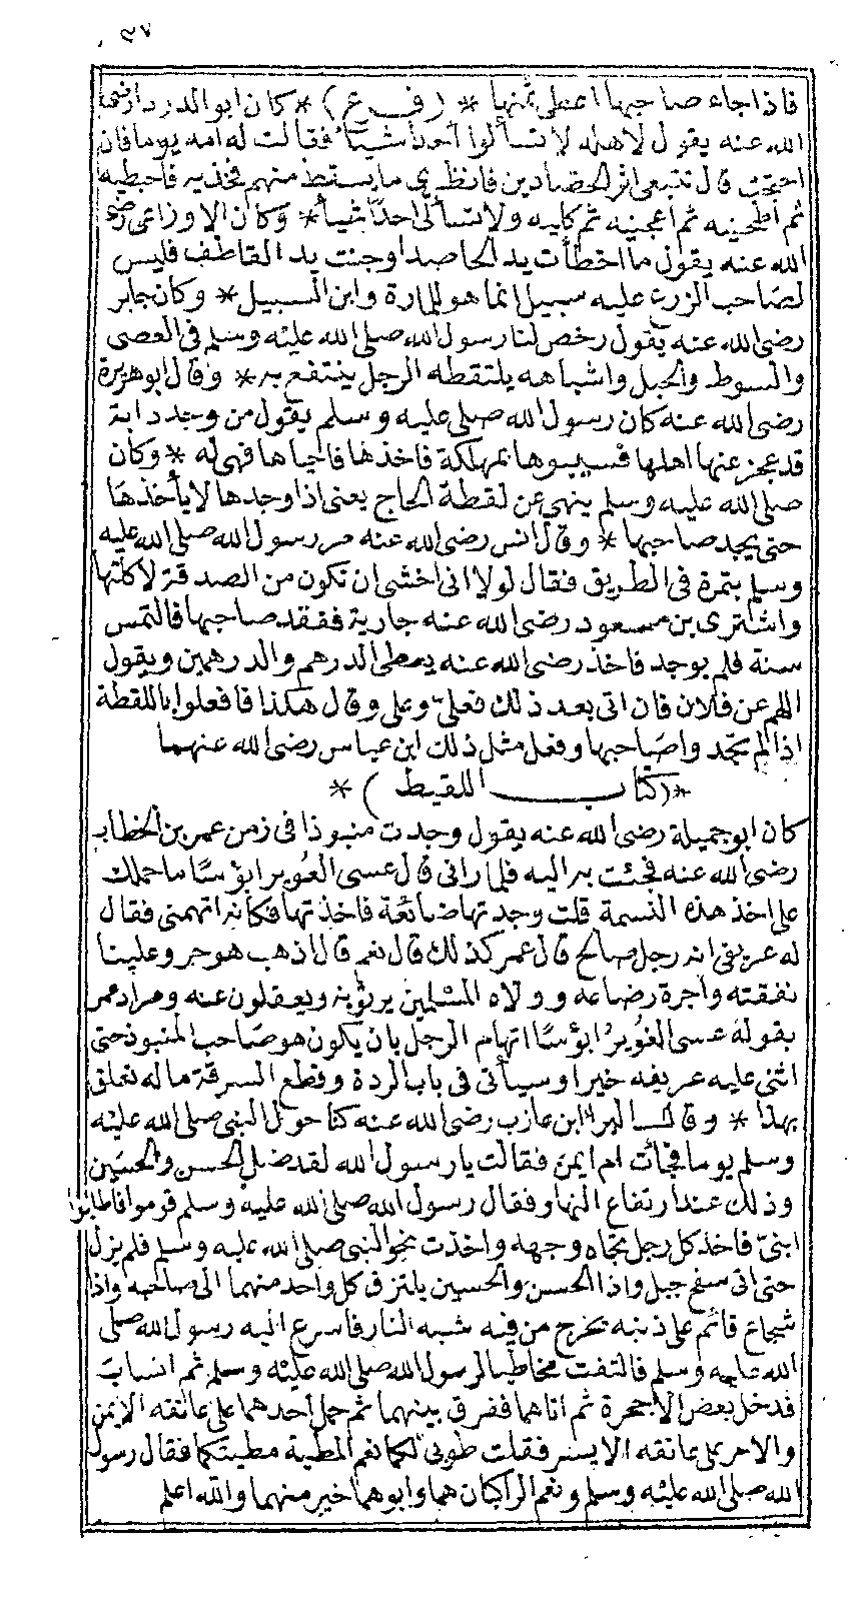 ٩٧
فاذا جاء صاحبها اعطى ثمنها * (فرع) * كان ابو الدرداء رضى
الله عنه يقول لاهله لا تسألوا أحدا شيئا فقالت له امه يوما فان
احتجت قال تتبعى اثر الحصادين فانظرى ما يسقط منهم فخذيه فاحبطيه
ثم اطحنيه ثم اعجنيه ثم كليه ولا تسألى احدا شيأ * وكان الاوزاعى رضى
الله عنه يقول ما اخطأت يد الحاصد اوجنت يد القاطف فليس
لصاحب الزرع عليه سبيل انما هو للمارة وابن السبيل * وكان جابر
رضى الله عنه يقول رخص لنا رسول الله صلى الله عليه وسلم فى العصى
والسوط والحبل واشباهه يلتقطه الرجل ينتفع به * وقال ابو هريرة
رضى الله عنه كان رسول الله صلى عليه وسلم يقول من وجد دابة
قد عجز عنها اهلها فسيبوها بمهلكة فاخذها فاحياها فهى له * وكان
صلى الله عليه وسلم ينهى عن لقطة الحاج يعنى اذا وجدها لا يأخذها
حتى يجد صاحبها * وقال انس رضى الله عنه مر رسول الله صلى الله عليه
وسلم بتمرة فى الطريق فقال لولا انى اخشى ان تكون من الصدقة لاكلتها
واشترى بن مسعود رضى الله عنه جارية ففقد صاحبها فالتمس
سنة فلم يوجد فاخذ رضى الله عنه يعطى الدرهم والدرهمين ويقول
اللهم عن فلان فان اتى بعد ذلك فعلىّ وعلى وقال هكذا فافعلوا باللقطة
اذا لم تجدوا صاحبها وفعل مثل ذلك ابن عباس رضى الله عنهما
* (كتاب اللقيط) *
كان ابو جميلة رضى الله عنه يقول وجدت منبوذا فى زمن عمر بن الخطاب
رضى الله عنه فجئت به اليه فلما رانى قال عسى الغُوير ابؤسًا ما حملك
على اخذ هذه النسمة قلت وجدتها ضائعة فاخذتها فكأنه اتهمنى فقال
له عريفى انه رجل صالح قال عمر كذلك قال نعم قال اذهب هو حر وعلينا
نفقته واجرة رضاعه وولاه المسلمين يرثونه ويعقلون عنه ومراد عمر
بقوله عسى الغويرُ ابؤسًا اتهام الرجل بان يكون هو صاحب المنبوذ حتى
اثنى عليه عريفه خيرا وسيأتى فى باب الردة وقطع السرقة ما له تعلق
بهذا * وقال البراء ابن عازب رضى الله عنه كنا حول النبى صلى الله عليه
وسلم يوما فجائت ام ايمن فقالت يا رسول الله لقد ضل الحسن والحسين
وذلك عند ارتفاع النهار فقال رسول الله صلى الله عليه وسلم قوموا فاطلبوا
ابنىّ فاخذ كل رجل تجاه وجهه واخذت نحو النبى صلى الله عليه وسلم فلم يزل
حتى اتى سفح جبل واذا الحسن والحسين يلتزق كل واحد منهما الى صاحبه واذا
شجاع قائم على ذنبه يخرج من فيه شبه النار فاسرع اليه رسول الله صلى
الله عليه وسلم فالتفت مخاطبا لرسول الله صلى الله عليه وسلم ثم انساب
فدخل بعض الاجحرة ثم اتاهما ففرق بينهما ثم حمل أحدهما على عاتقه الايمن
والاخر على عاتقه الايسر فقلت طوبى لكما نعم المطية مطيتكما فقال رسول
الله صلى الله عليه وسلم ونعم الراكبان هما وابوهما خير منهما والله اعلم